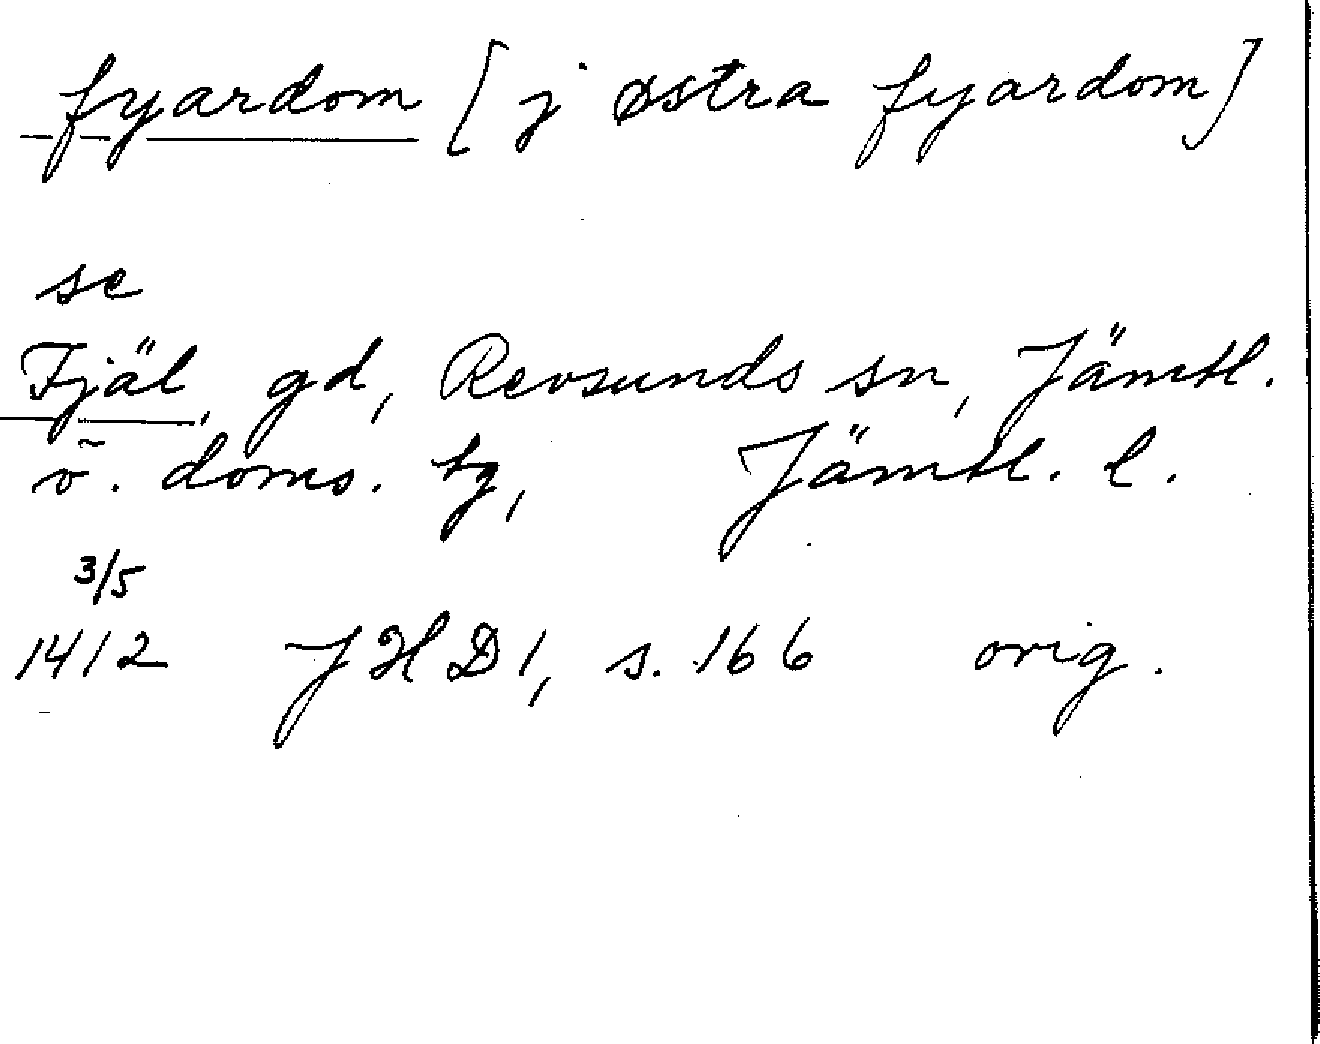 fyardom [j østra fyardom]
se
Fjäl, gd, Revsunds sn, Jämtl.
ö. doms. tg, Jämtl. l.
3/5
1412 JHD1, s. 166 orig.